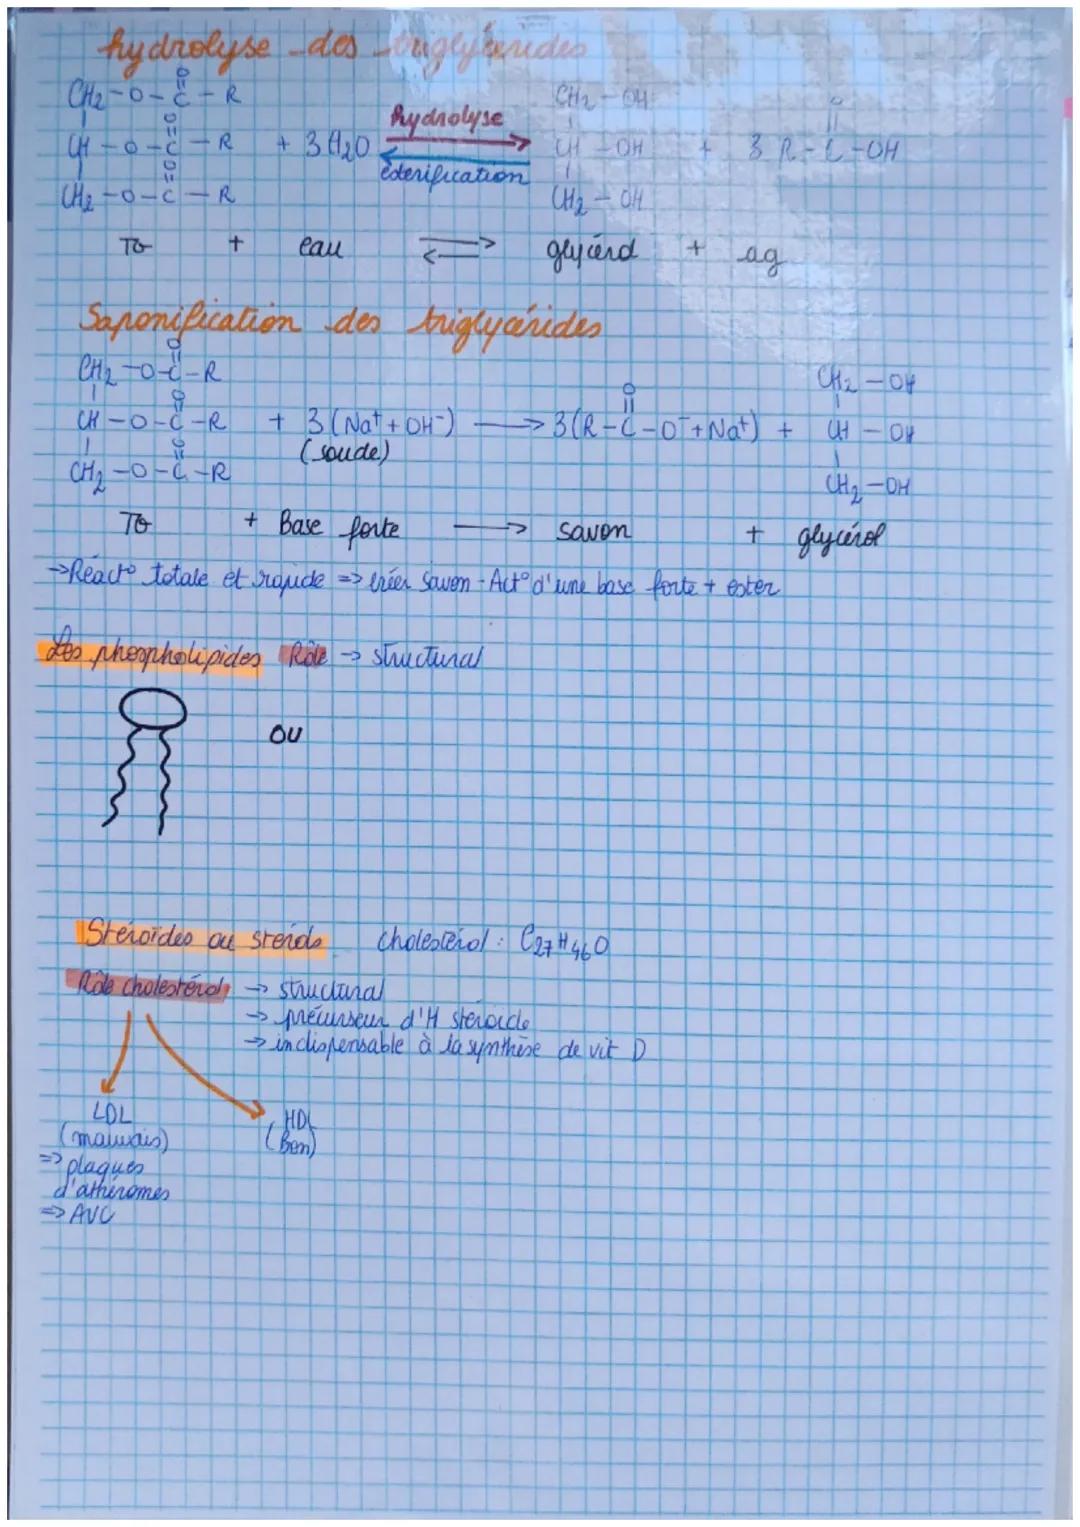 hydrolyse des triglycérides
CH2-O-C-R
O
CH-O-C-R + 3 H2O hydrolyse CH-OH + 3 R-C-OH
O
CH2-OH
CH2-O-C-R estérification CH2-OH
O
TG + eau ⇌ glycérol + ag
Saponification des triglycérides
CH2-O-C-R
O
CH2-OH
CH-O-C-R + 3(Na+ + OH-) → 3(R-C-O- + Na+) + CH-OH
O
O
(soude)
CH2-O-C-R CH2-OH
O
TG + Base forte → savon + glycérol
→Réact° totale et rapide => créer savon - Act° d'une base forte + ester
Les phospholipides Rôle → structural
OU
Stéroïdes ou stérols cholestérol : C27H46O
Rôle cholestérol → structural
→ précurseur d'H stéroïde
→ indispensable à la synthèse de vit D
LDL HDL
(mauvais) (Bon)
=> plaques
d'athéromes
=> AVC